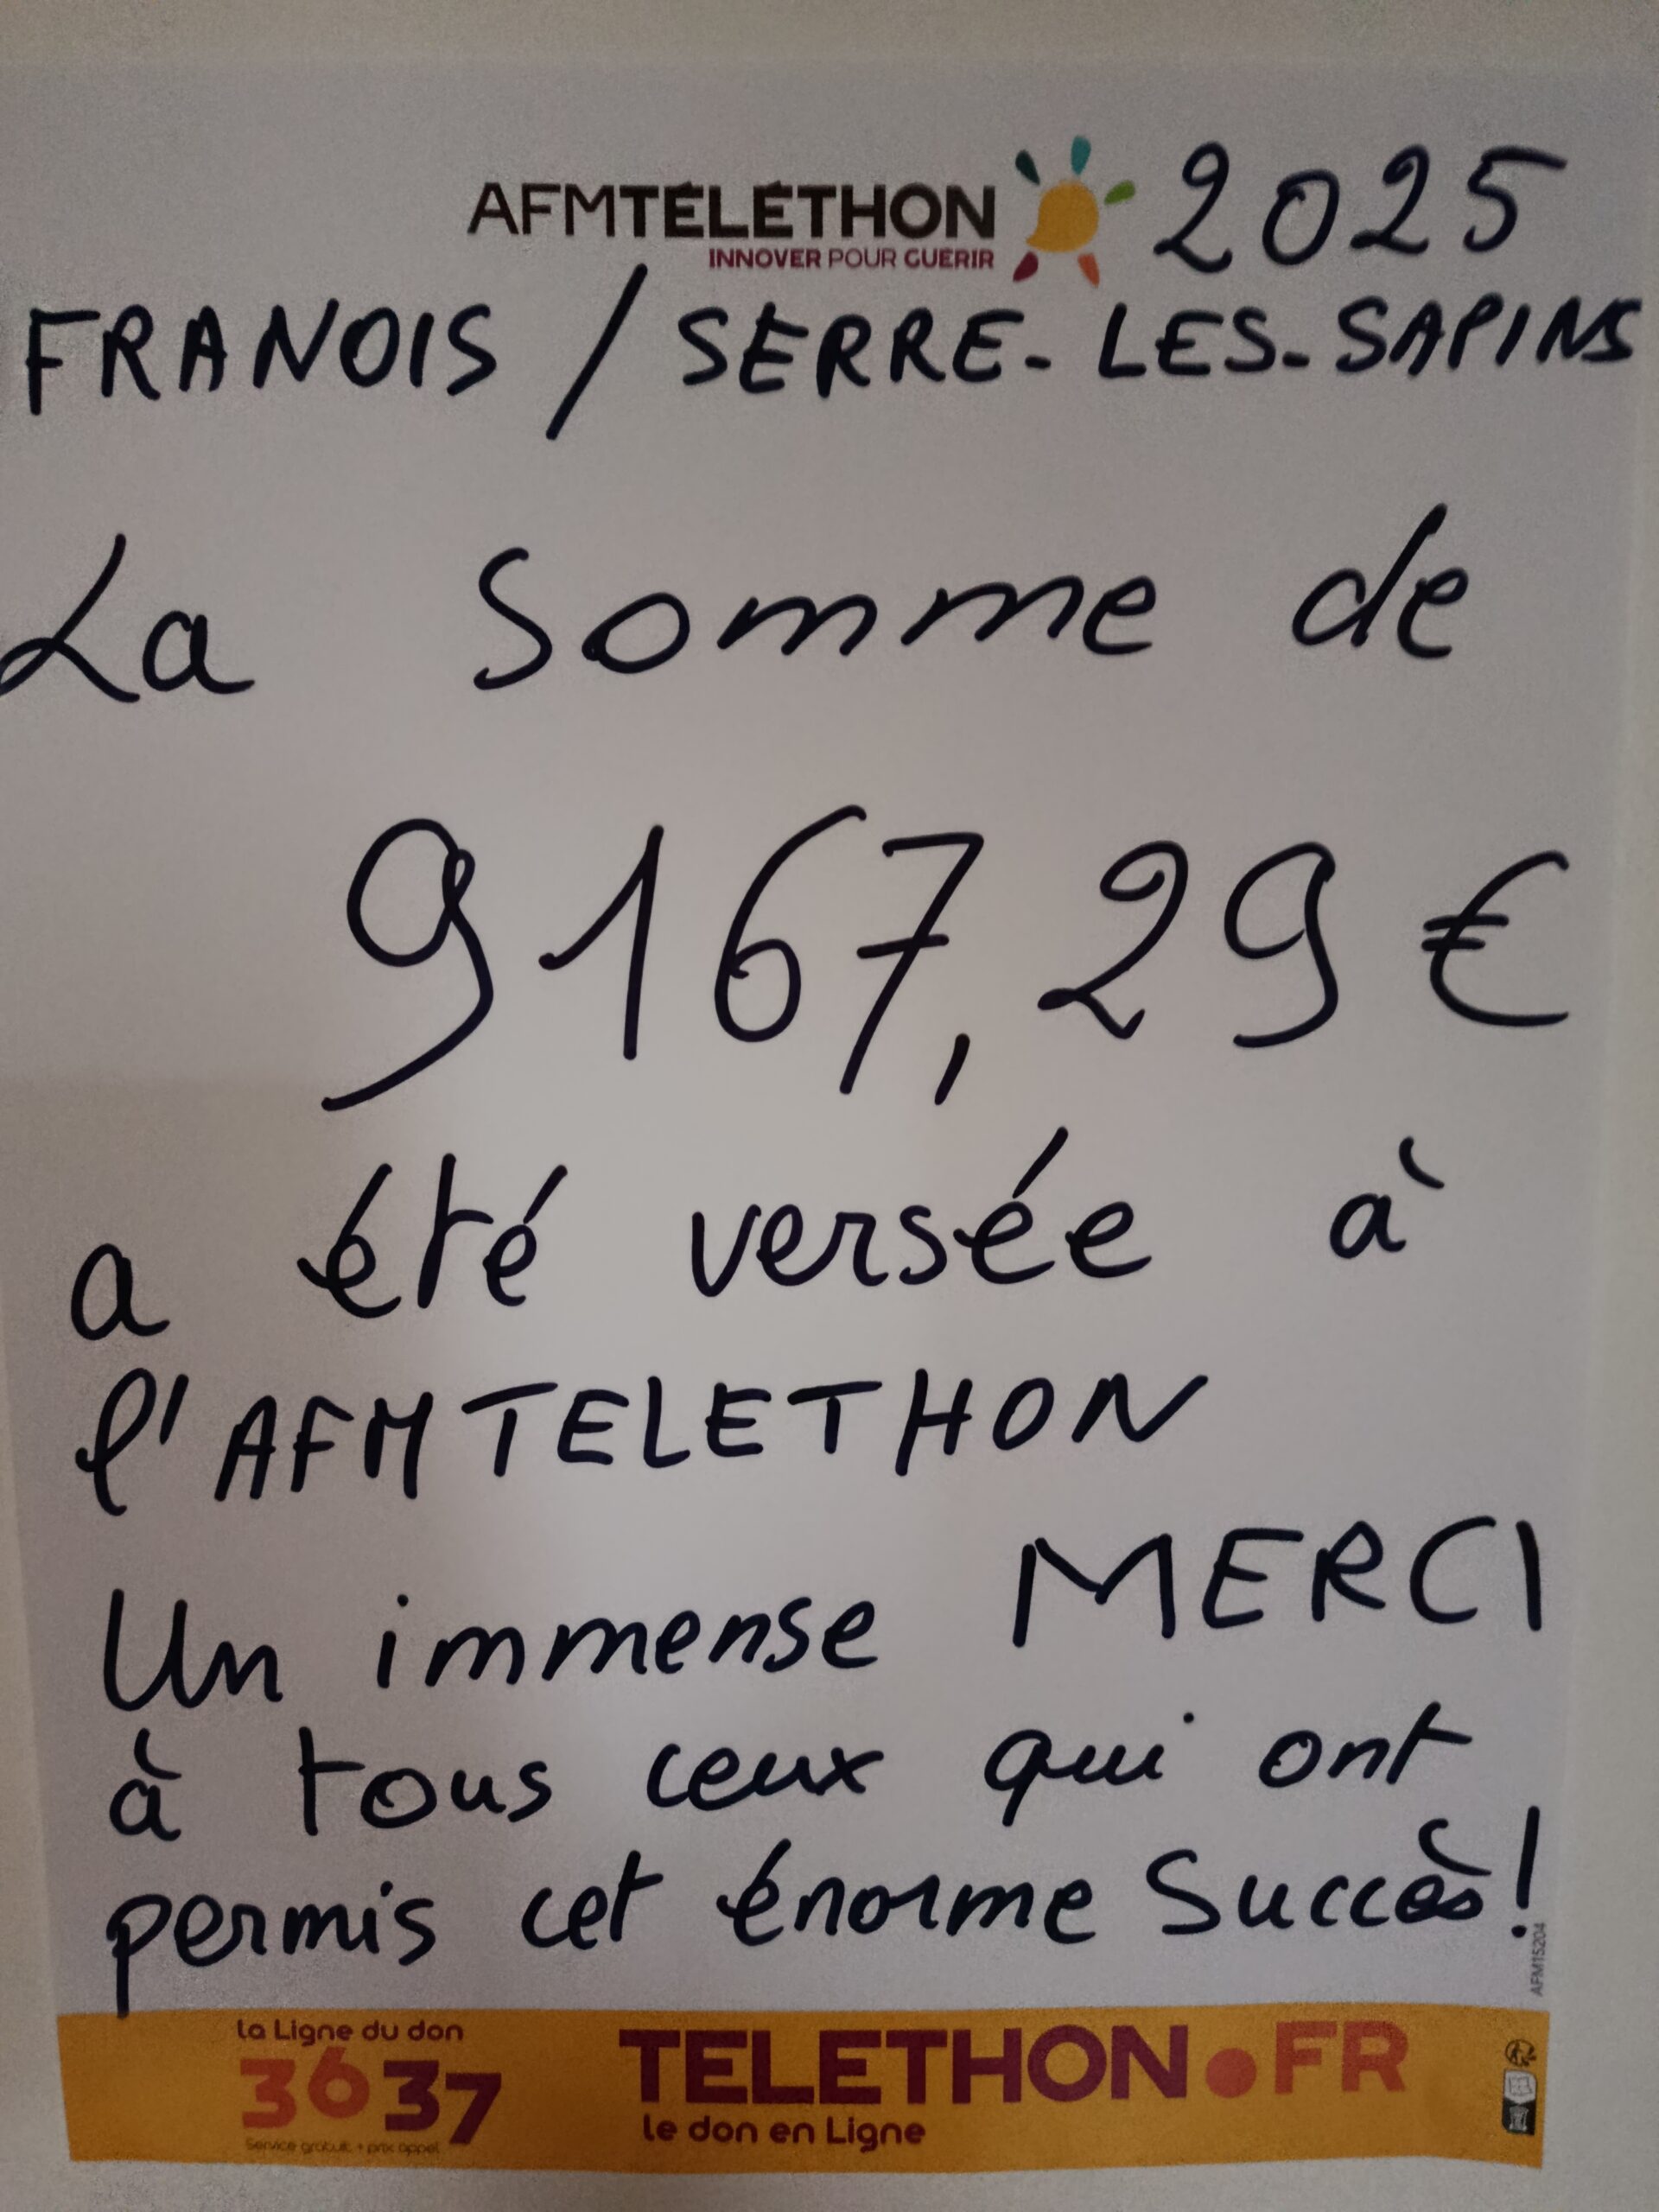 AFMTÉLÉTHON 2025
INNOVER POUR GUÉRIR
FRANOIS / SERRE-LES-SAPINS
La Somme de
9167,29 €
a été versée à
l'AFM TELETHON
Un immense MERCI
à tous ceux qui ont
permis cet énorme Succès!
AFM15204
la Ligne du don
3637
Service gratuit + prix appel
TELETHON.FR
le don en Ligne